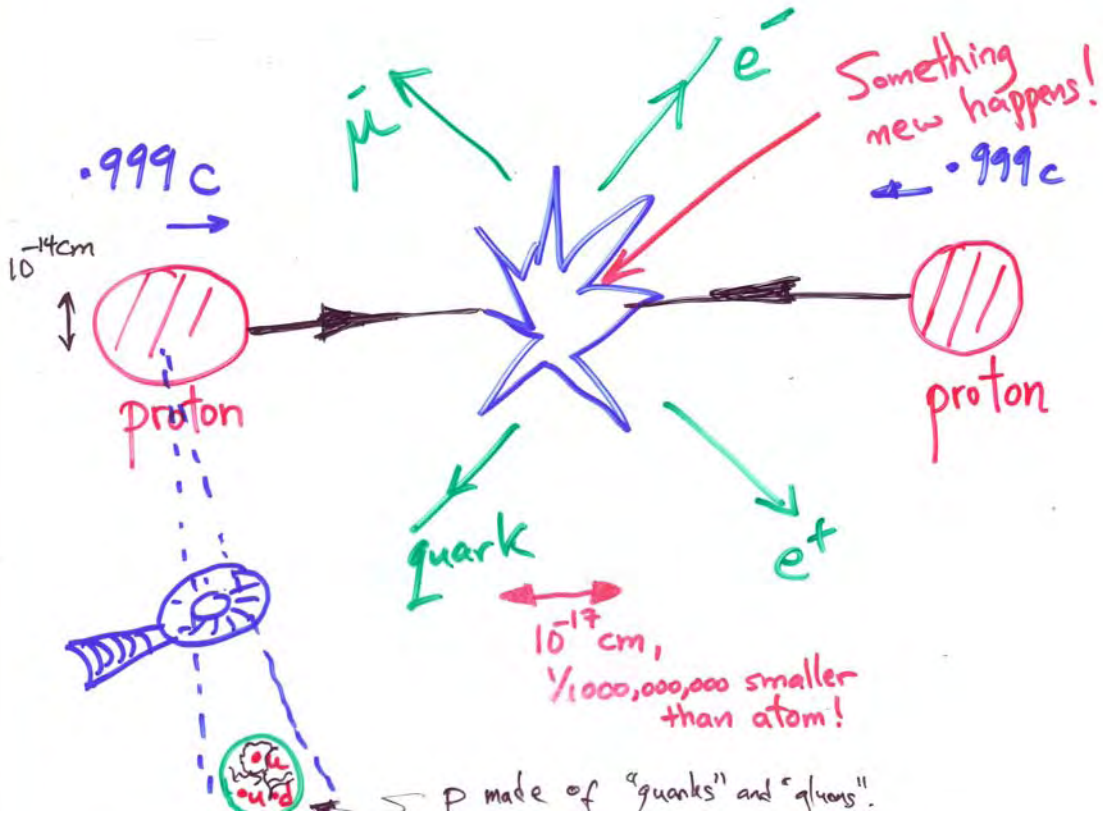 e⁻
Something
new happens!
μ⁻
.999c
.999c
10⁻¹⁴cm
proton
proton
quark
e⁺
10⁻¹⁷ cm,
1/1000,000,000 smaller
than atom!
u
u d
p made of "quarks" and "gluons".